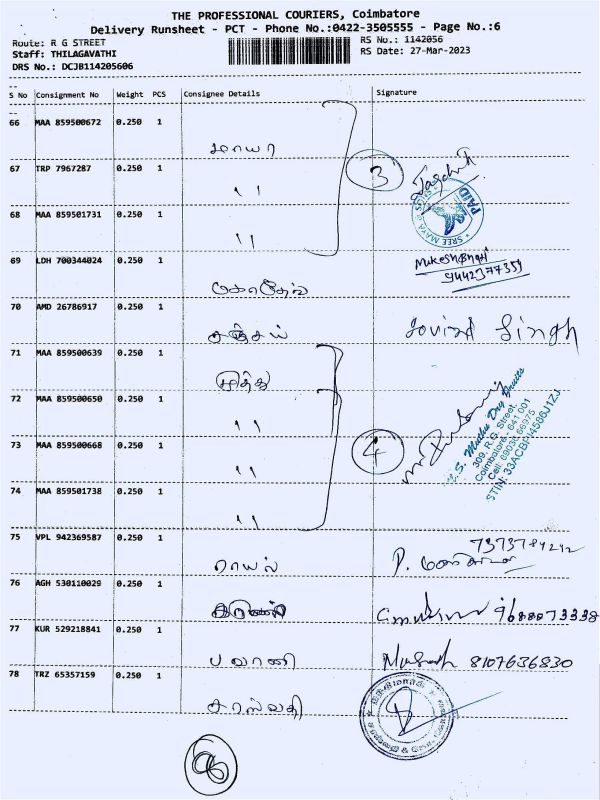 THE PROFESSIONAL COURIERS, Coimbatore
Delivery Runsheet - PCT - Phone No.:0422-3505555 - Page No.:6
Route: R G STREET
RS No.: 1142056
Staff: THILAGAVATHI
RS Date: 27-Mar-2023
DRS No.: DCJB114205606
S No Consignment No Weight PCS Consignee Details Signature
66 MAA 859500672 0.250 1
மாயா
67 TRP 7967287 0.250 1
" 3
68 MAA 859501731 0.250 1
" PAID
SREE MAYA
69 LDH 700344024 0.250 1
Mukesh
70 AMD 26786917 0.250 1
சஞ்சய் Govind Singh
71 MAA 859500639 0.250 1
முத்து
72 MAA 859500650 0.250 1
"
73 MAA 859500668 0.250 1
" 4
M.S. Muthu Dry Fruits
309, R.G. Street,
Coimbatore - 641 001
74 MAA 859501738 0.250 1
"
75 VPL 942369587 0.250 1
ராயல்
76 AGH 530110029 0.250 1
9688073338
77 KUR 529218841 0.250 1
பவானி 8107636830
78 TRZ 65357159 0.250 1
சரஸ்வதி